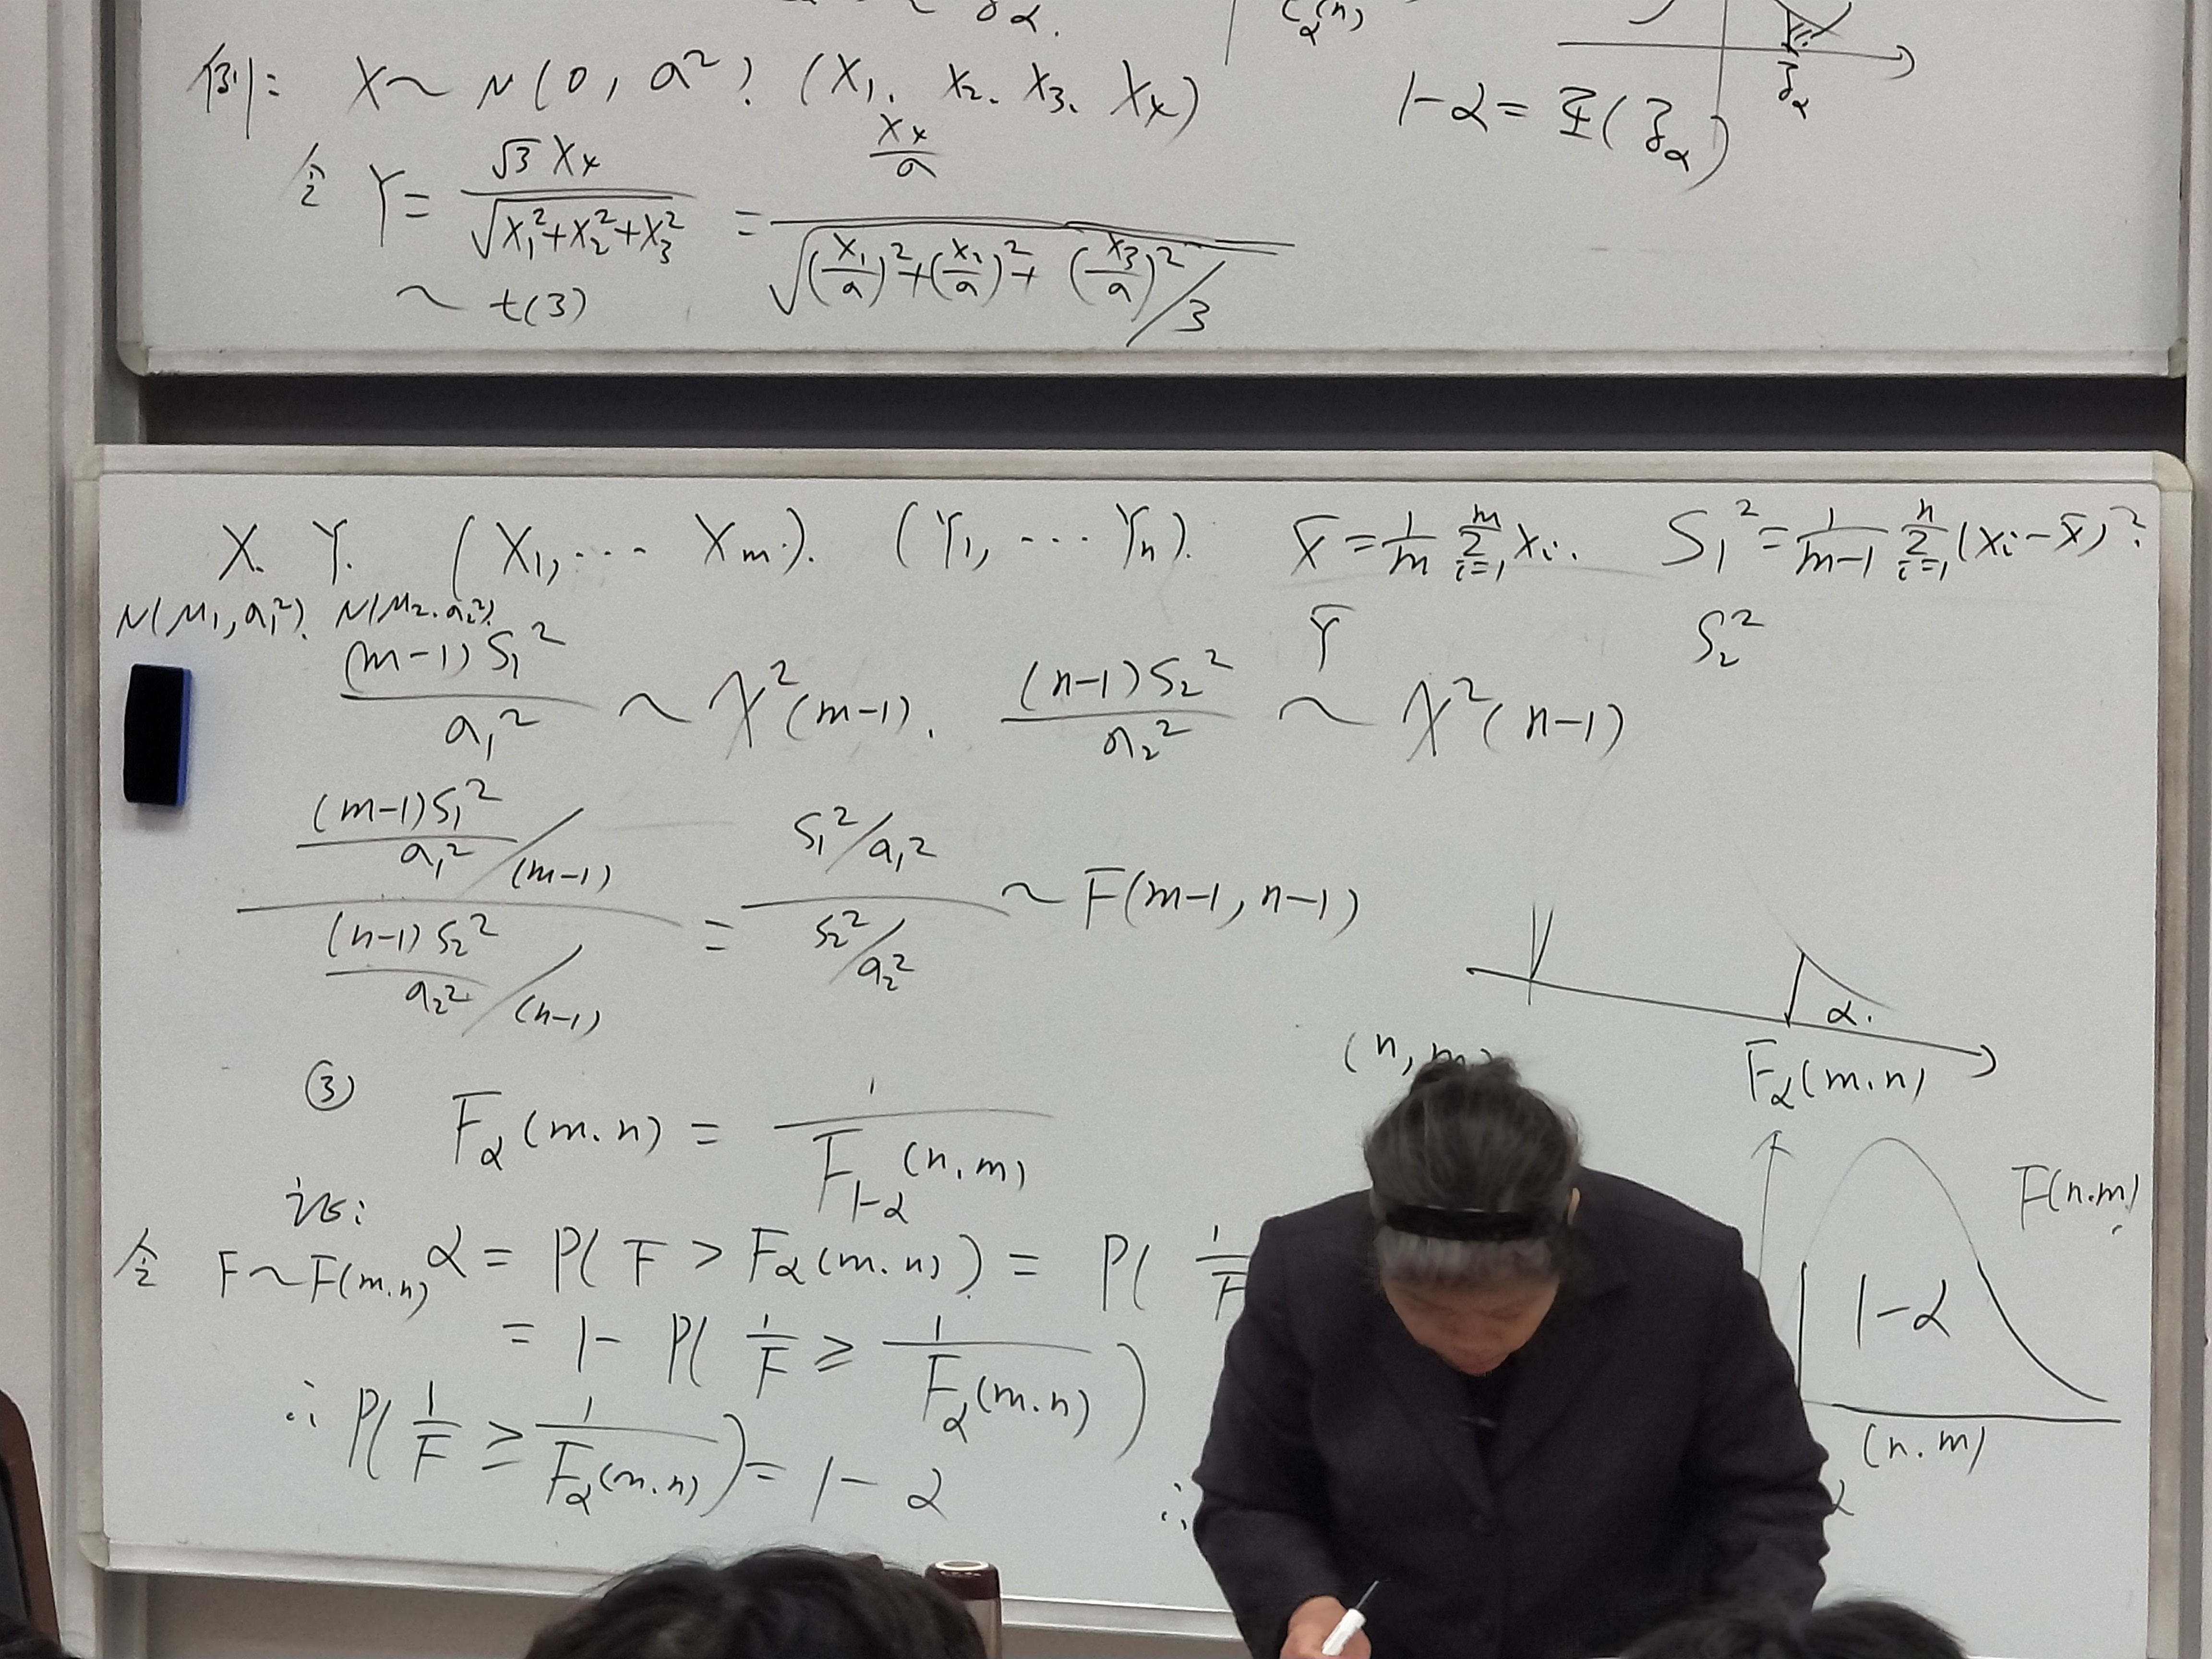 α.
(n)
例: X ~ N(0, a²). (X₁, X₂, X₃, X₄)
1-α = Φ(z_α)
z_α
令 Y = √3 X₄ / √(X₁²+X₂²+X₃²) = (X₄/a) / √(((X₁/a)²+(X₂/a)²+(X₃/a)²)/3)
~ t(3)
X. Y. (X₁, ... Xₘ). (Y₁, ... Yₙ). X̄ = 1/m Σᵢ₌₁ᵐ Xᵢ. S₁² = 1/(m-1) Σᵢ₌₁ⁿ (Xᵢ-X̄)².
N(μ₁, a₁²). N(μ₂. a₂²). Ȳ S₂²
(m-1)S₁²/a₁² ~ χ²(m-1). (n-1)S₂²/a₂² ~ χ²(n-1)
((m-1)S₁²/a₁² / (m-1)) / ((n-1)S₂²/a₂² / (n-1)) = (S₁²/a₁²) / (S₂²/a₂²) ~ F(m-1, n-1)
α.
F_α(m.n)
(n, m)
③ F_α(m.n) = 1 / F_{1-α}(n.m)
证:
令 F~F(m.n) α = P( F > F_α(m.n) ) = P( 1/F
= 1 - P( 1/F ≥ 1/F_α(m.n) )
∴ P( 1/F ≥ 1/F_α(m.n) ) = 1 - α
∴
F(n.m)
1-α
(n.m)